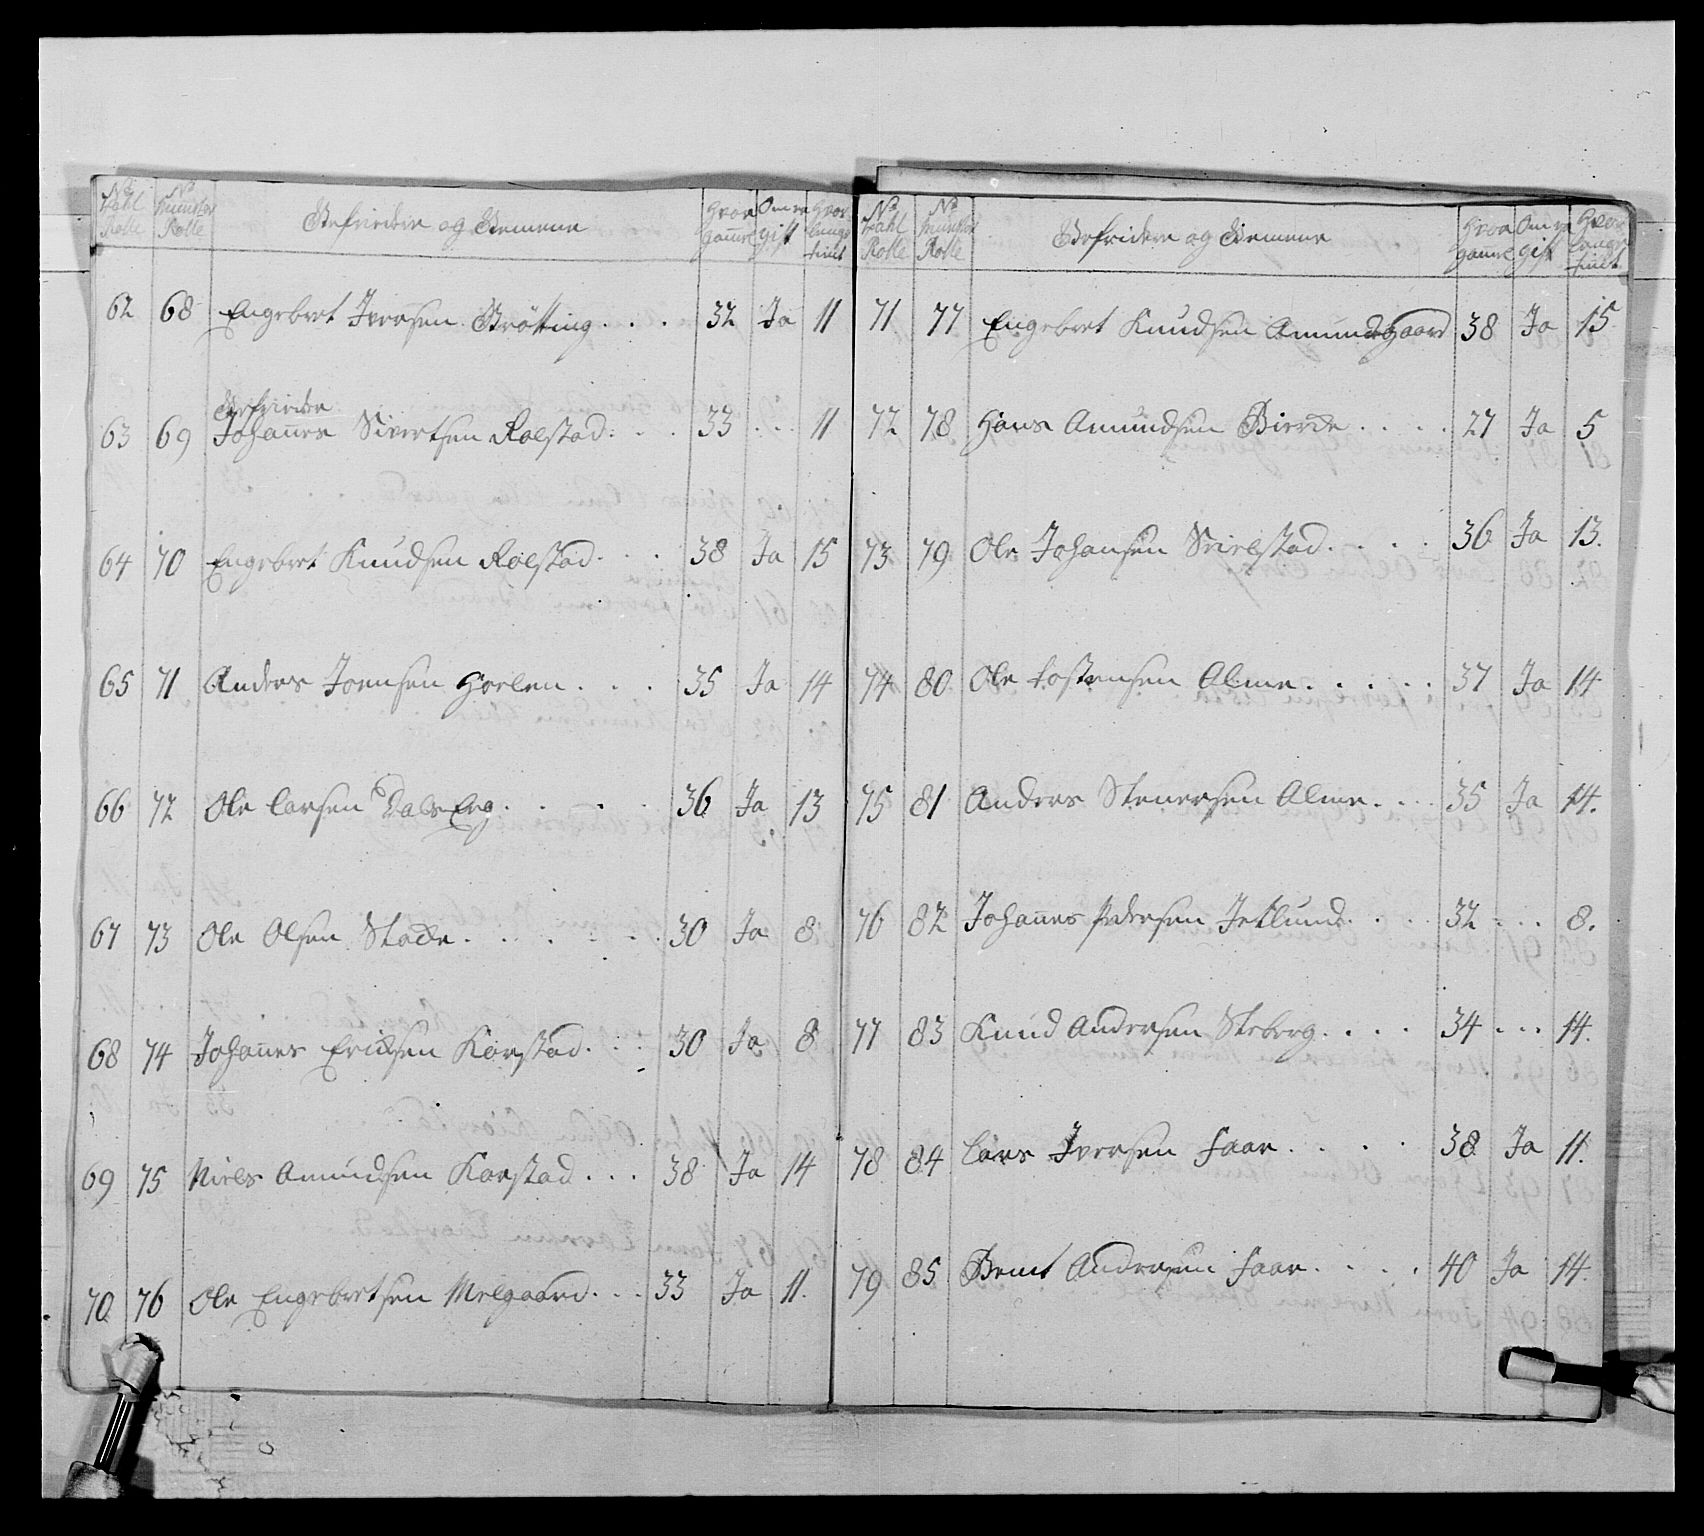 No Tahl Rolle | No Munster Rolle | Gefriedere og Gemene | Hvor gamel | Om er gift | Hvor længe tient
62 68 Engebret Iversen Trøtting. . . . 32 Ja 11
Gefrieder
63 69 Johannes Sivertsen Rolstad. . . . 33 . . . 11
64 70 Engebret Knudsen Rolstad. . . . 38 Ja 15
65 71 Anders Joensen Horlen . . . . 35 Ja 14
66 72 Ole Larsen Dals Eng. . . . . 36 Ja 13
67 73 Ole Olsen Stacke. . . . . . 30 Ja 8
68 74 Johannes Ericksen Korstad. . . . 30 Ja 8
69 75 Niels Amundsen Korstad . . . 38 Ja 14
70 76 Ole Engebretsen Melgaard. . . 33 Ja 11.
No Tahl Rolle | No Munster Rolle | Gefridere og Gemene | Hvor gamel | Om er gift | Hvor længe tient
71 77 Engebret Knudsen Amundsgaard 38 Ja 15
72 78 Hans Amundsen Biercke . . . . 27 Ja 5
73 79 Ole Johansen Svielstad. . . . 36 Ja 13.
74 80 Ole Tostensen Alme. . . . . . 37 Ja 14
75 81 Anders Stenersen Alme. . . . 35 Ja 14.
76 82 Johannes Pedersen Jetlund. . . . 32 . . . 8.
77 83 Knud Andersen Steberg. . . . 34 . . . 14.
78 84 Lars Iversen Faar. . . . 38 Ja 11.
79 85 Bent Andersen Faar. . . . . 40 Ja 14.